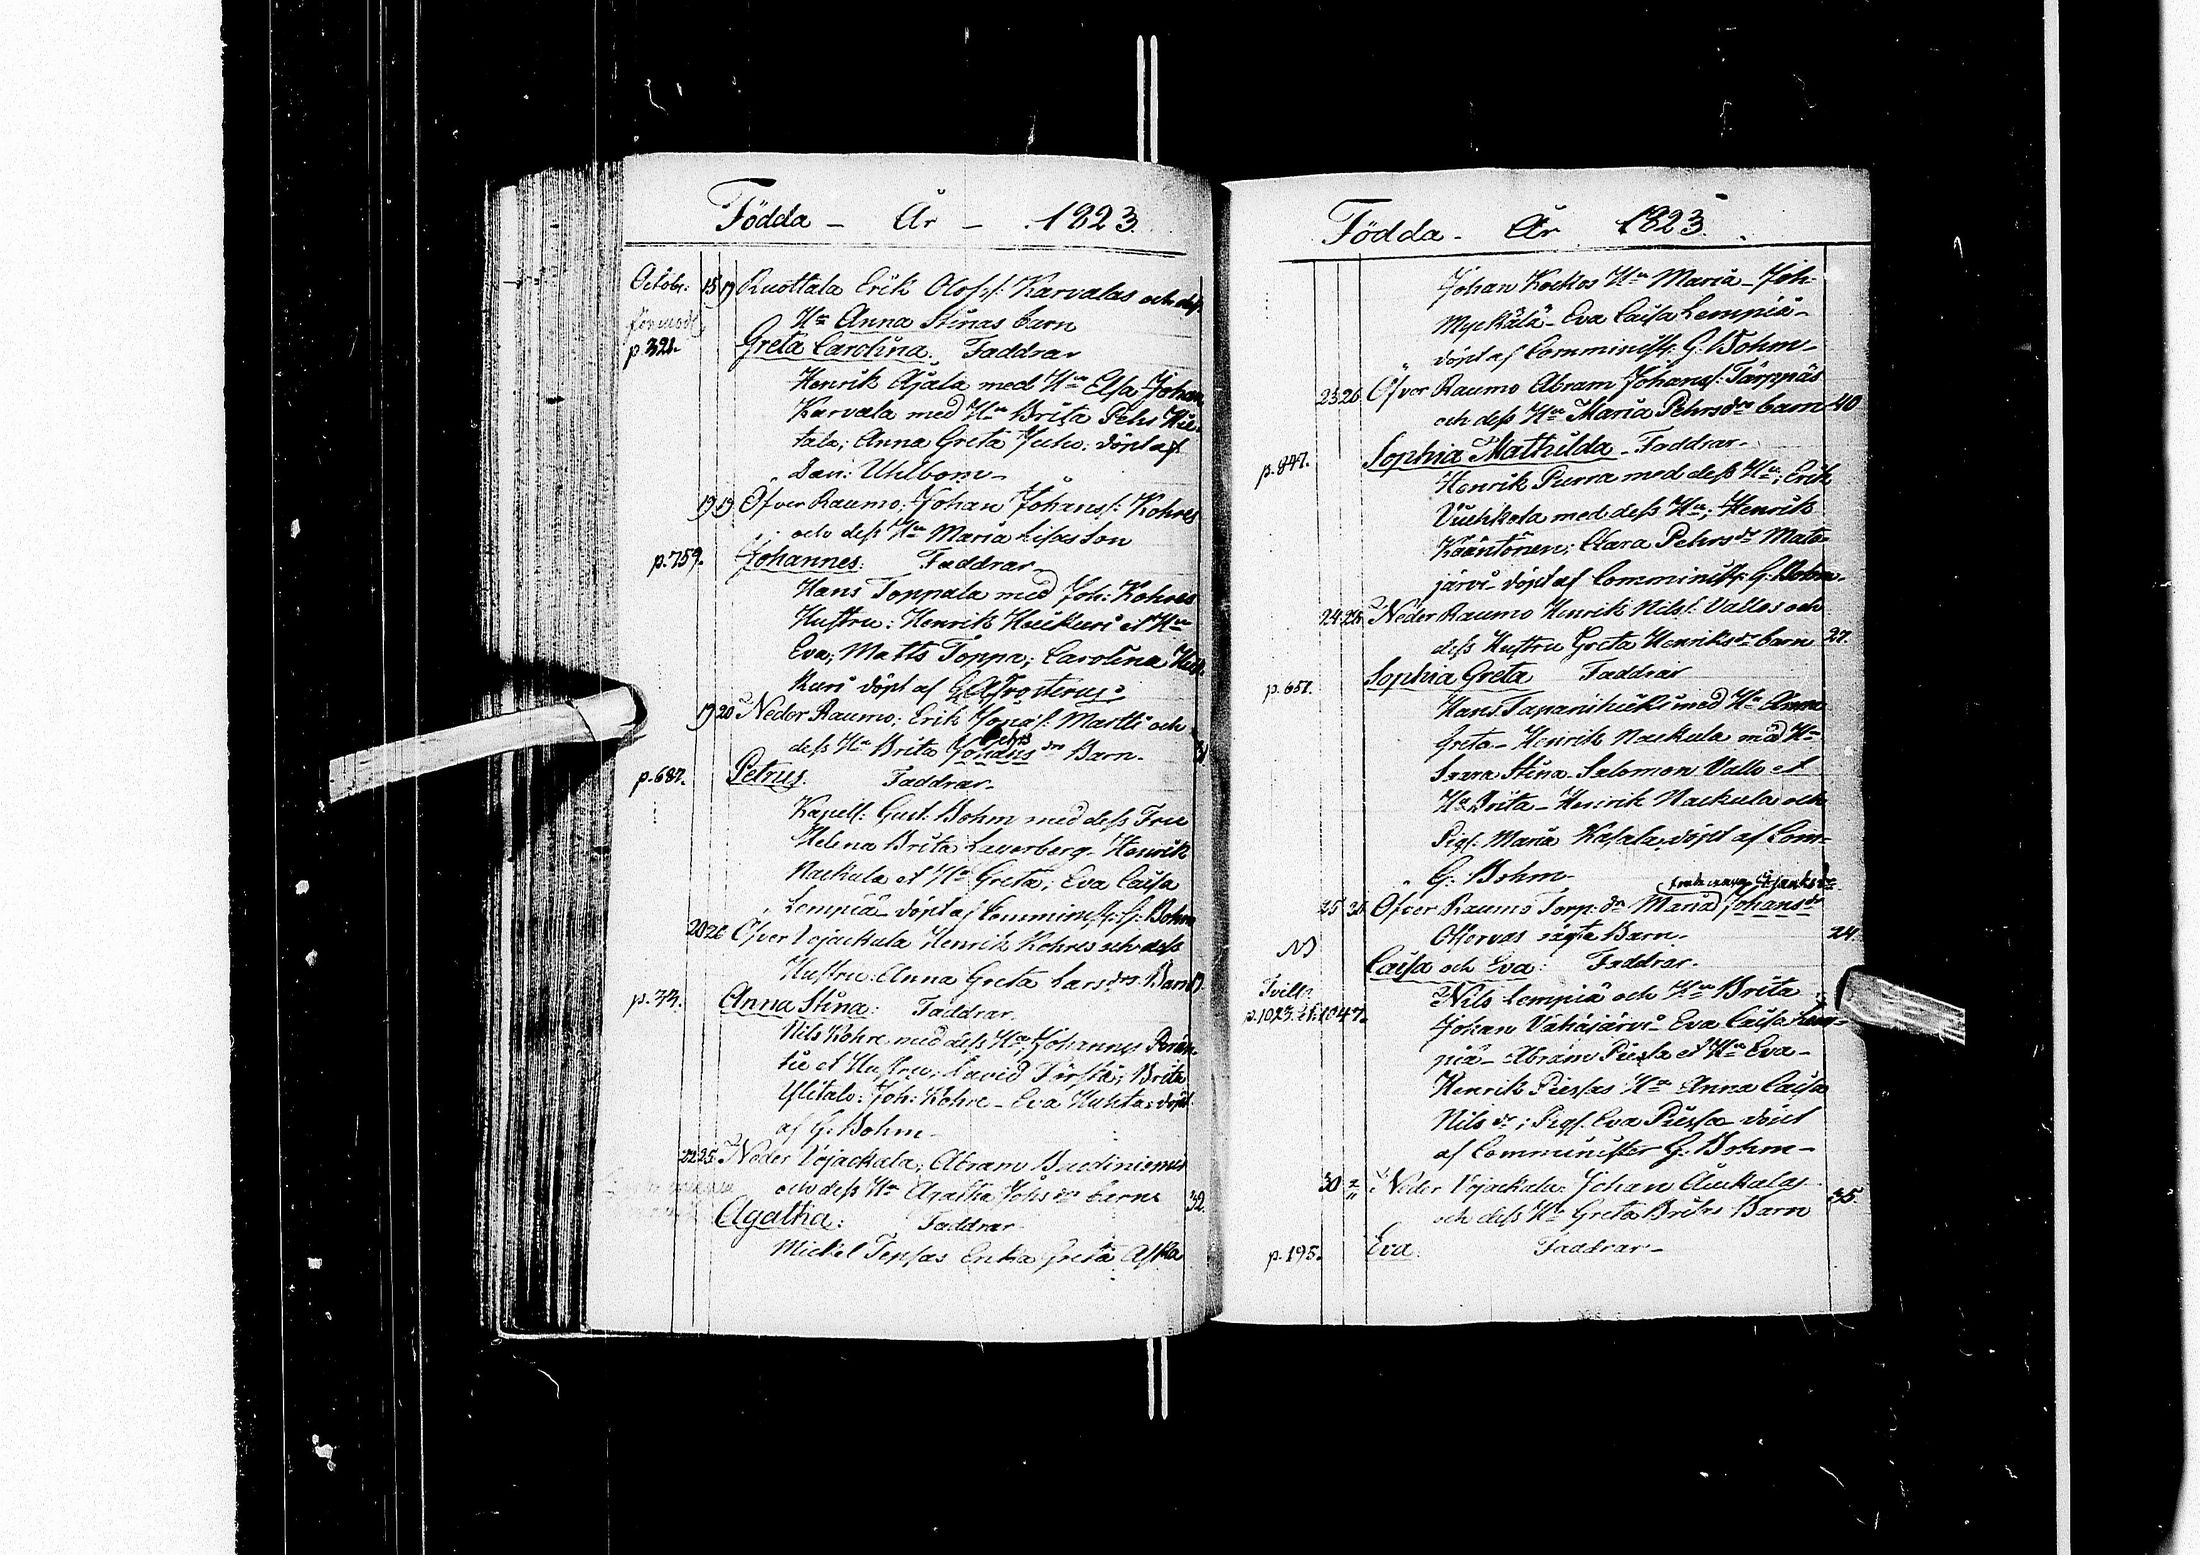 Födda - År - 1823.
Octobr. 15 19 Ruottala Erik Olofs: Karvalas och dess
Hu Anna Stinas barn
p. 321. Greta Carolina. Faddrar
Henrik Ajala med Hu Elsa Johan
Karvala med Hu Brita Pehr Hie-
tala; Anna Greta Juho: döpt af
Dan: Uhlbom-
19 19 Öfver Raumo; Johan Johans: Kohres
och dess Hu Maria Lisas Son
p. 759. Johannes: Faddrar-
Hans Toppala med Joh: Kohres
Hustru: Henrik Huikuri et Hu
Eva; Matts Toppa; Carolina Hui-
kuri döpt af Frosterus:
19 20 Neder Raumo; Erik Jonas: Martti och
Pehrs
dess Hu Brita Johans dr Barn. 31
p. 687. Petrus. Faddrar-
Kapell: Gust. Bohm med dess Fru
Helena Brita Laverberg- Henrik
Nackula et Hu Greta; Eva Caisa
Lempiä- döpt af Comminist: G: Bohm
20 26 Öfver Vojackala Henrik Kohres och dess
Hustru: Anna Greta Lars drs Barn
p. 33. Anna Stina: Faddrar.
Nils Kohre med dess Hu; Johannes
et Hustru; David; Brita
Ylitalo: Joh: Kohre- Eva Huhta: döpt
af G: Bohm-
22 25 Neder Vojackala; Abram
och dess Hu Agatha Johs dr barn 32.
Agatha: Faddrar
Mickel Tepsas Enka Greta
Födda - År 1823.
Johan Kockos Hu Maria- Joh-
Myckälä- Eva Caisa Lempiä-
döpt af Comminist: G: Bohm-
23 26 Öfver Raumo Abram Johans: Tärppäs
och dess Hu Maria Pehrs dr barn 40
p. 847. Sophia Mathilda- Faddrar-
Henrik Purra med dess Hu; Erik
Vuehkola med dess Hu; Henrik
Kääntönen; Clara Pehrs dr Mata-
järvi- döpt af Comminist: G: Bohm-
24 25 Neder Raumo Henrik Nils: Vallos och
dess Hustru Greta Henriks dr barn 27.
p. 657. Sophia Greta Faddrar
Hans Tapanihicki med Hu Anna
Greta- Henrik Nackula med Hu
Saara Stina- Salomon Vallo et
Hu Brita- Henrik Nackula och
Pig: Maria Kasala, döpt af Com-
G: Bohm-
25 26 Öfver Raumo Torp: dr Maria Johans dr
Ollorvas oägta Barn. 24.
Caisa och Eva: Faddrar.
Tvill: Nils Lempiä och Hu Brita
p. 1023. et 1047. Johan Vähäjärvi- Eva Caisa Lem-
piä- Abram Piessa et Hu Eva-
Henrik Piessas Hu Anna Caisa
Nils dr; Pig: Eva Piessa- döpt
af Comminister G: Bohm-
30 Neder Vojackala: Johan
och dess Hu Greta Britas Barn 35.
p. 195. Eva. Faddrar-